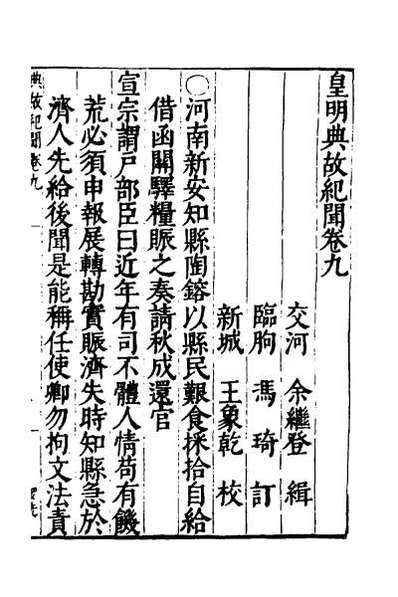 皇明典故紀聞卷九
交河 余繼登 緝
臨朐 馮琦 訂
新城 王象乾 校
○河南新安知縣陶鎔以縣民艱食採拾自給
借函關驛糧賑之奏請秋成還官
宣宗謂戶部臣曰近年有司不體人情苟有饑
荒必須申報展轉勘實賑濟失時知縣急於
濟人先給後聞是能稱任使卿勿拘文法責
典故紀聞卷九